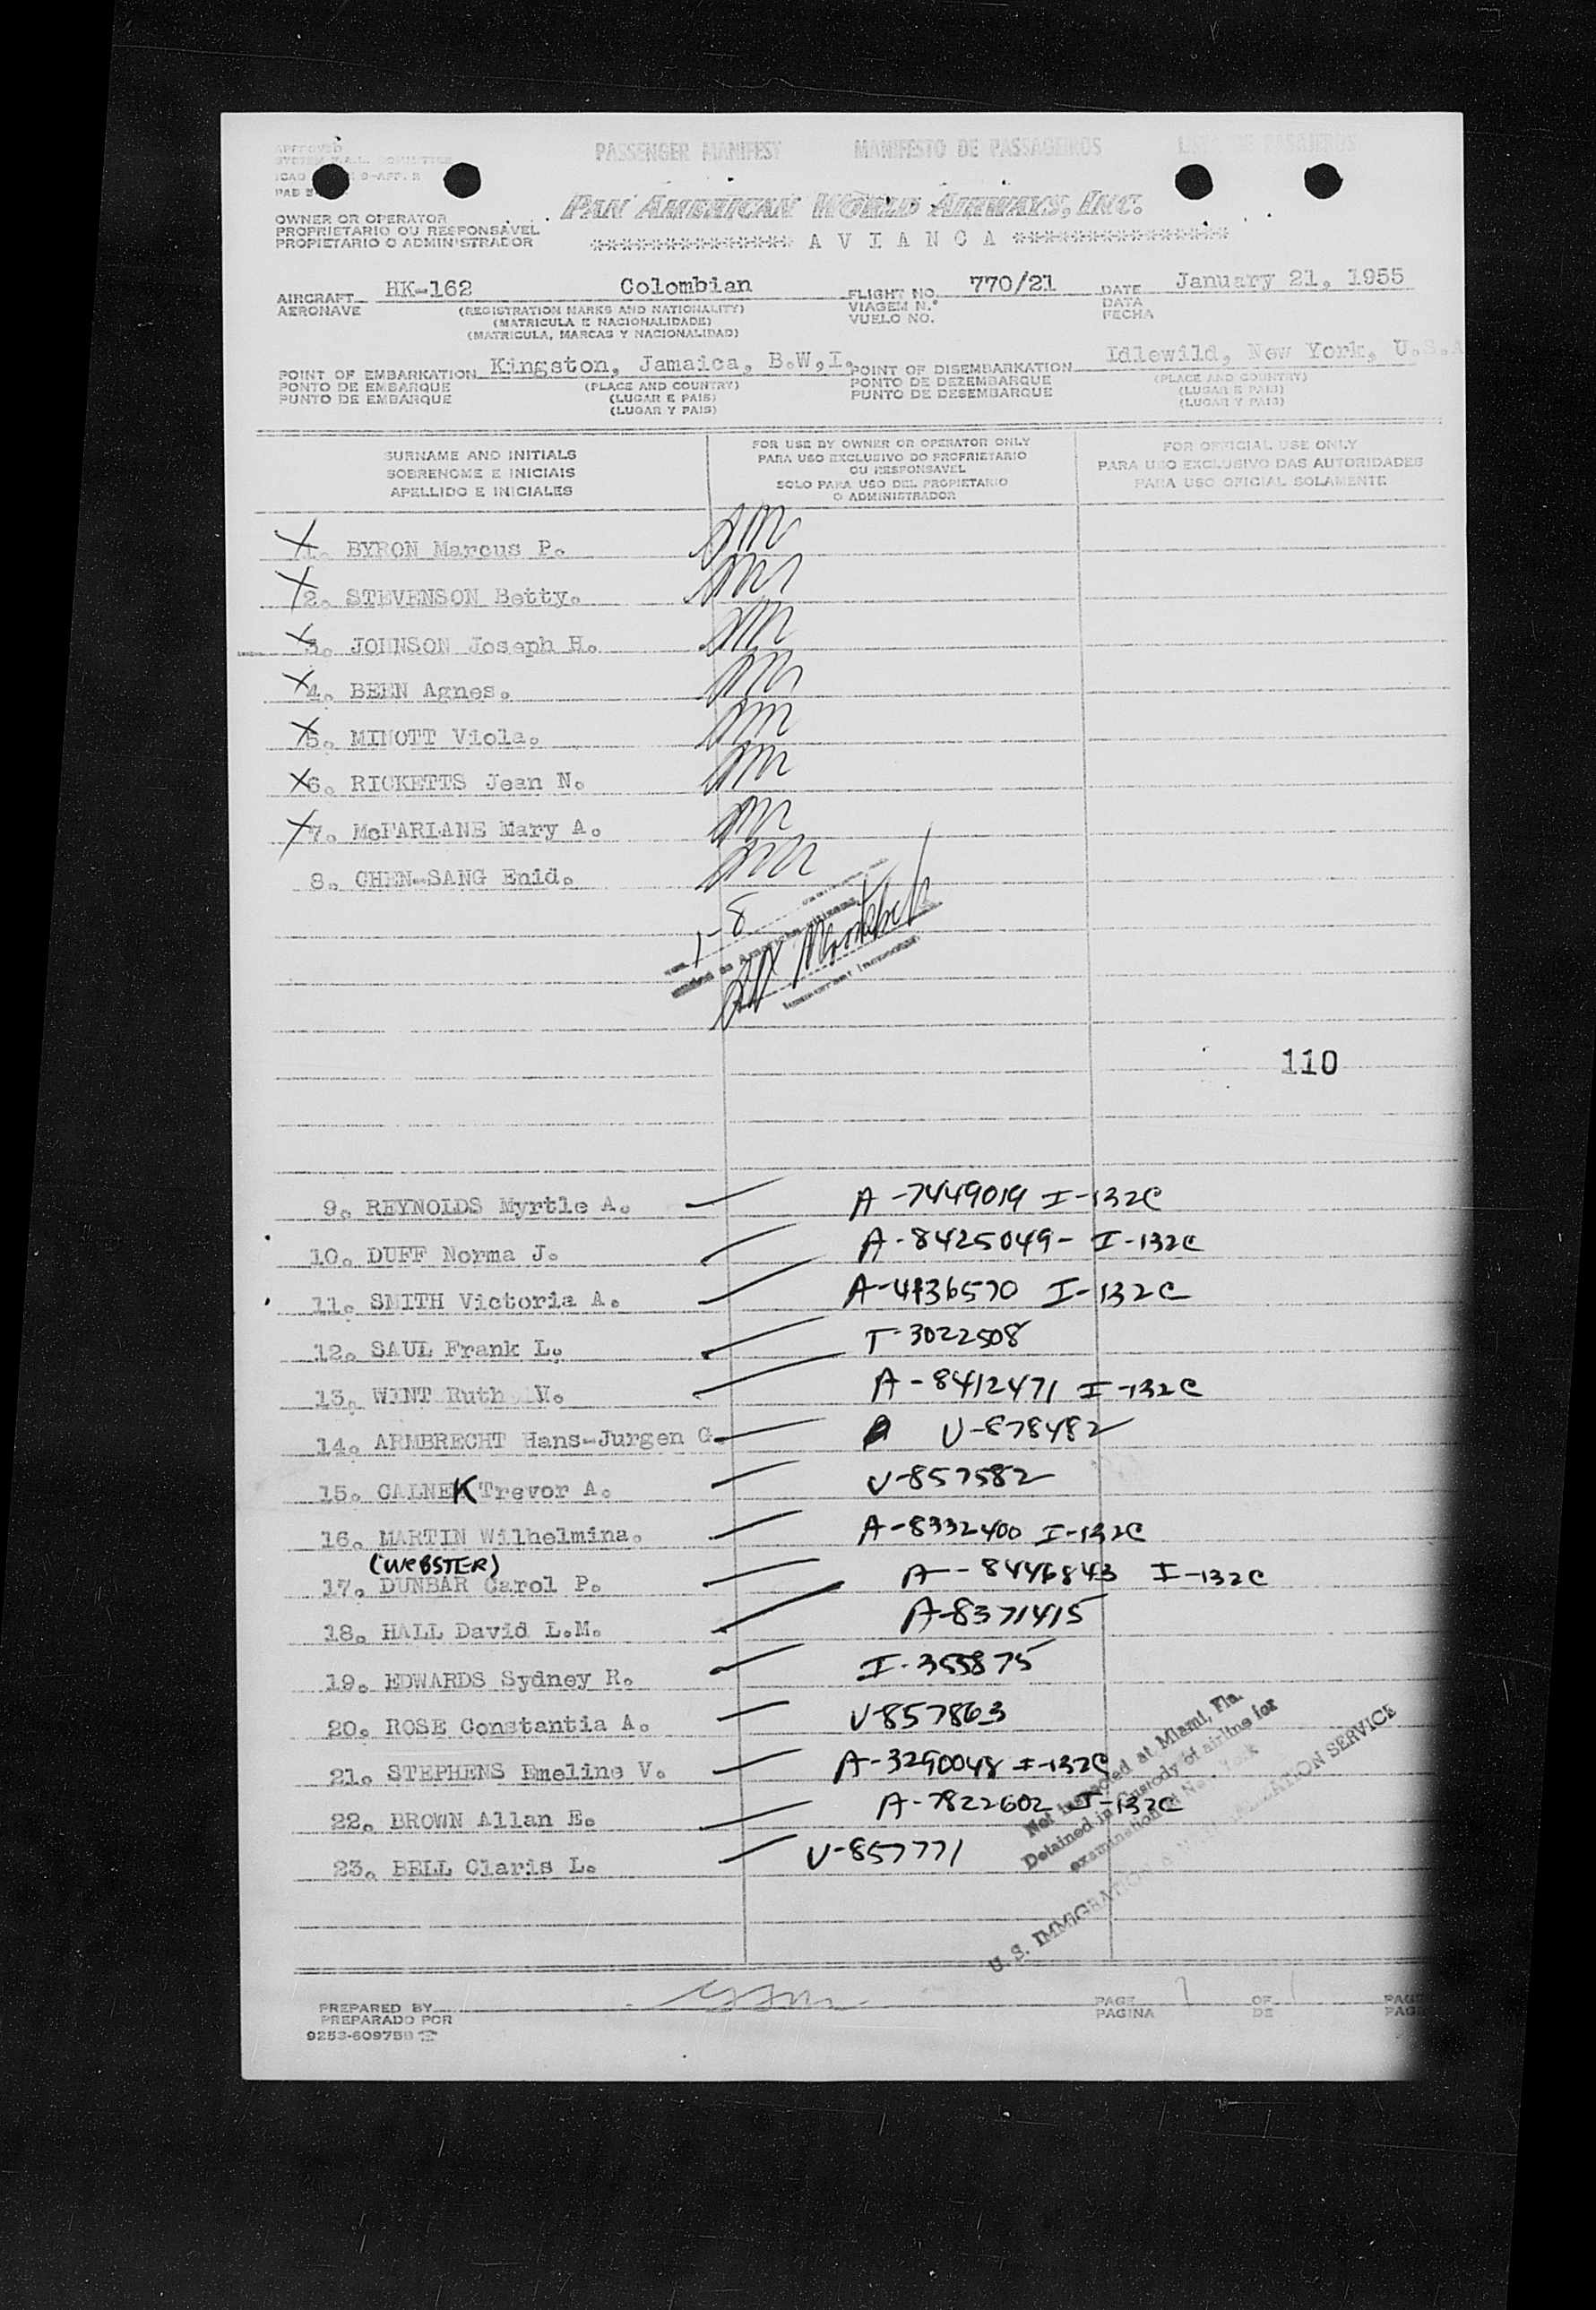 APPROVED
PASSENGER MANIFEST MANIFESTO DE PASSAGEIROS LISTA DE PASAJEROS
OWNER OR OPERATOR
PROPRIETARIO OU RESPONSAVEL
PROPIETARIO O ADMINISTRADOR
PAN AMERICAN WORLD AIRWAYS, INC.
*************** A V I A N C A ***************
AIRCRAFT HK-162 Colombian FLIGHT NO. 770/21 DATE January 21, 1955
AERONAVE (REGISTRATION MARKS AND NATIONALITY) VIAGEM N.° DATA
(MATRICULA E NACIONALIDADE) VUELO NO. FECHA
(MATRICULA, MARCAS Y NACIONALIDAD)
POINT OF EMBARKATION Kingston, Jamaica, B.W,I. POINT OF DISEMBARKATION Idlewild, New York, U.S.A
PONTO DE EMBARQUE (PLACE AND COUNTRY) PONTO DE DEZEMBARQUE (PLACE AND COUNTRY)
PUNTO DE EMBARQUE (LUGAR E PAIS) PUNTO DE DESEMBARQUE (LUGAR E PAIS)
(LUGAR Y PAIS) (LUGAR Y PAIS)
SURNAME AND INITIALS
SOBRENOME E INICIAIS
APELLIDO E INICIALES
FOR USE BY OWNER OR OPERATOR ONLY
PARA USO EXCLUSIVO DO PROPRIETARIO
OU RESPONSAVEL
SOLO PARA USO DEL PROPIETARIO
O ADMINISTRADOR
FOR OFFICIAL USE ONLY
PARA USO EXCLUSIVO DAS AUTORIDADES
PARA USO OFICIAL SOLAMENTE
1. BYRON Marcus P.
2. STEVENSON Betty.
3. JOHNSON Joseph H.
4. BEEN Agnes.
5. MINOTT Viola.
6. RICKETTS Jean N.
7. McFARLANE Mary A.
8. CHEN-SANG Enid.
1-8
110
9. REYNOLDS Myrtle A. A-7449019 I-132C
10. DUFF Norma J. A-8425049- I-132C
11. SMITH Victoria A. A-4836570 I-132C
12. SAUL Frank L. T-3022508
13. WINT Ruth V. A-8412471 I-132C
14. ARMBRECHT Hans-Jurgen G. V-878482
15. CALNEK Trevor A. V-857582
16. MARTIN Wilhelmina. A-8332400 I-132C
(WEBSTER)
17. DUNBAR Carol P. A--8446843 I-132C
18. HALL David L.M. A-8371415
19. EDWARDS Sydney R. I-355875
20. ROSE Constantia A. V-857863
21. STEPHENS Emeline V. A-3290048 I-132C
22. BROWN Allan E. A-7822602 I-132C
23. BELL Claris L. V-857771
Not inspected at Miami, Fla.
Detained in Custody of airline for
examination at New York
U. S. IMMIGRATION & NATURALIZATION SERVICE
PREPARED BY PAGE 1 OF 1 PAG
PREPARADO POR PAGINA DE PAG
9253-609758